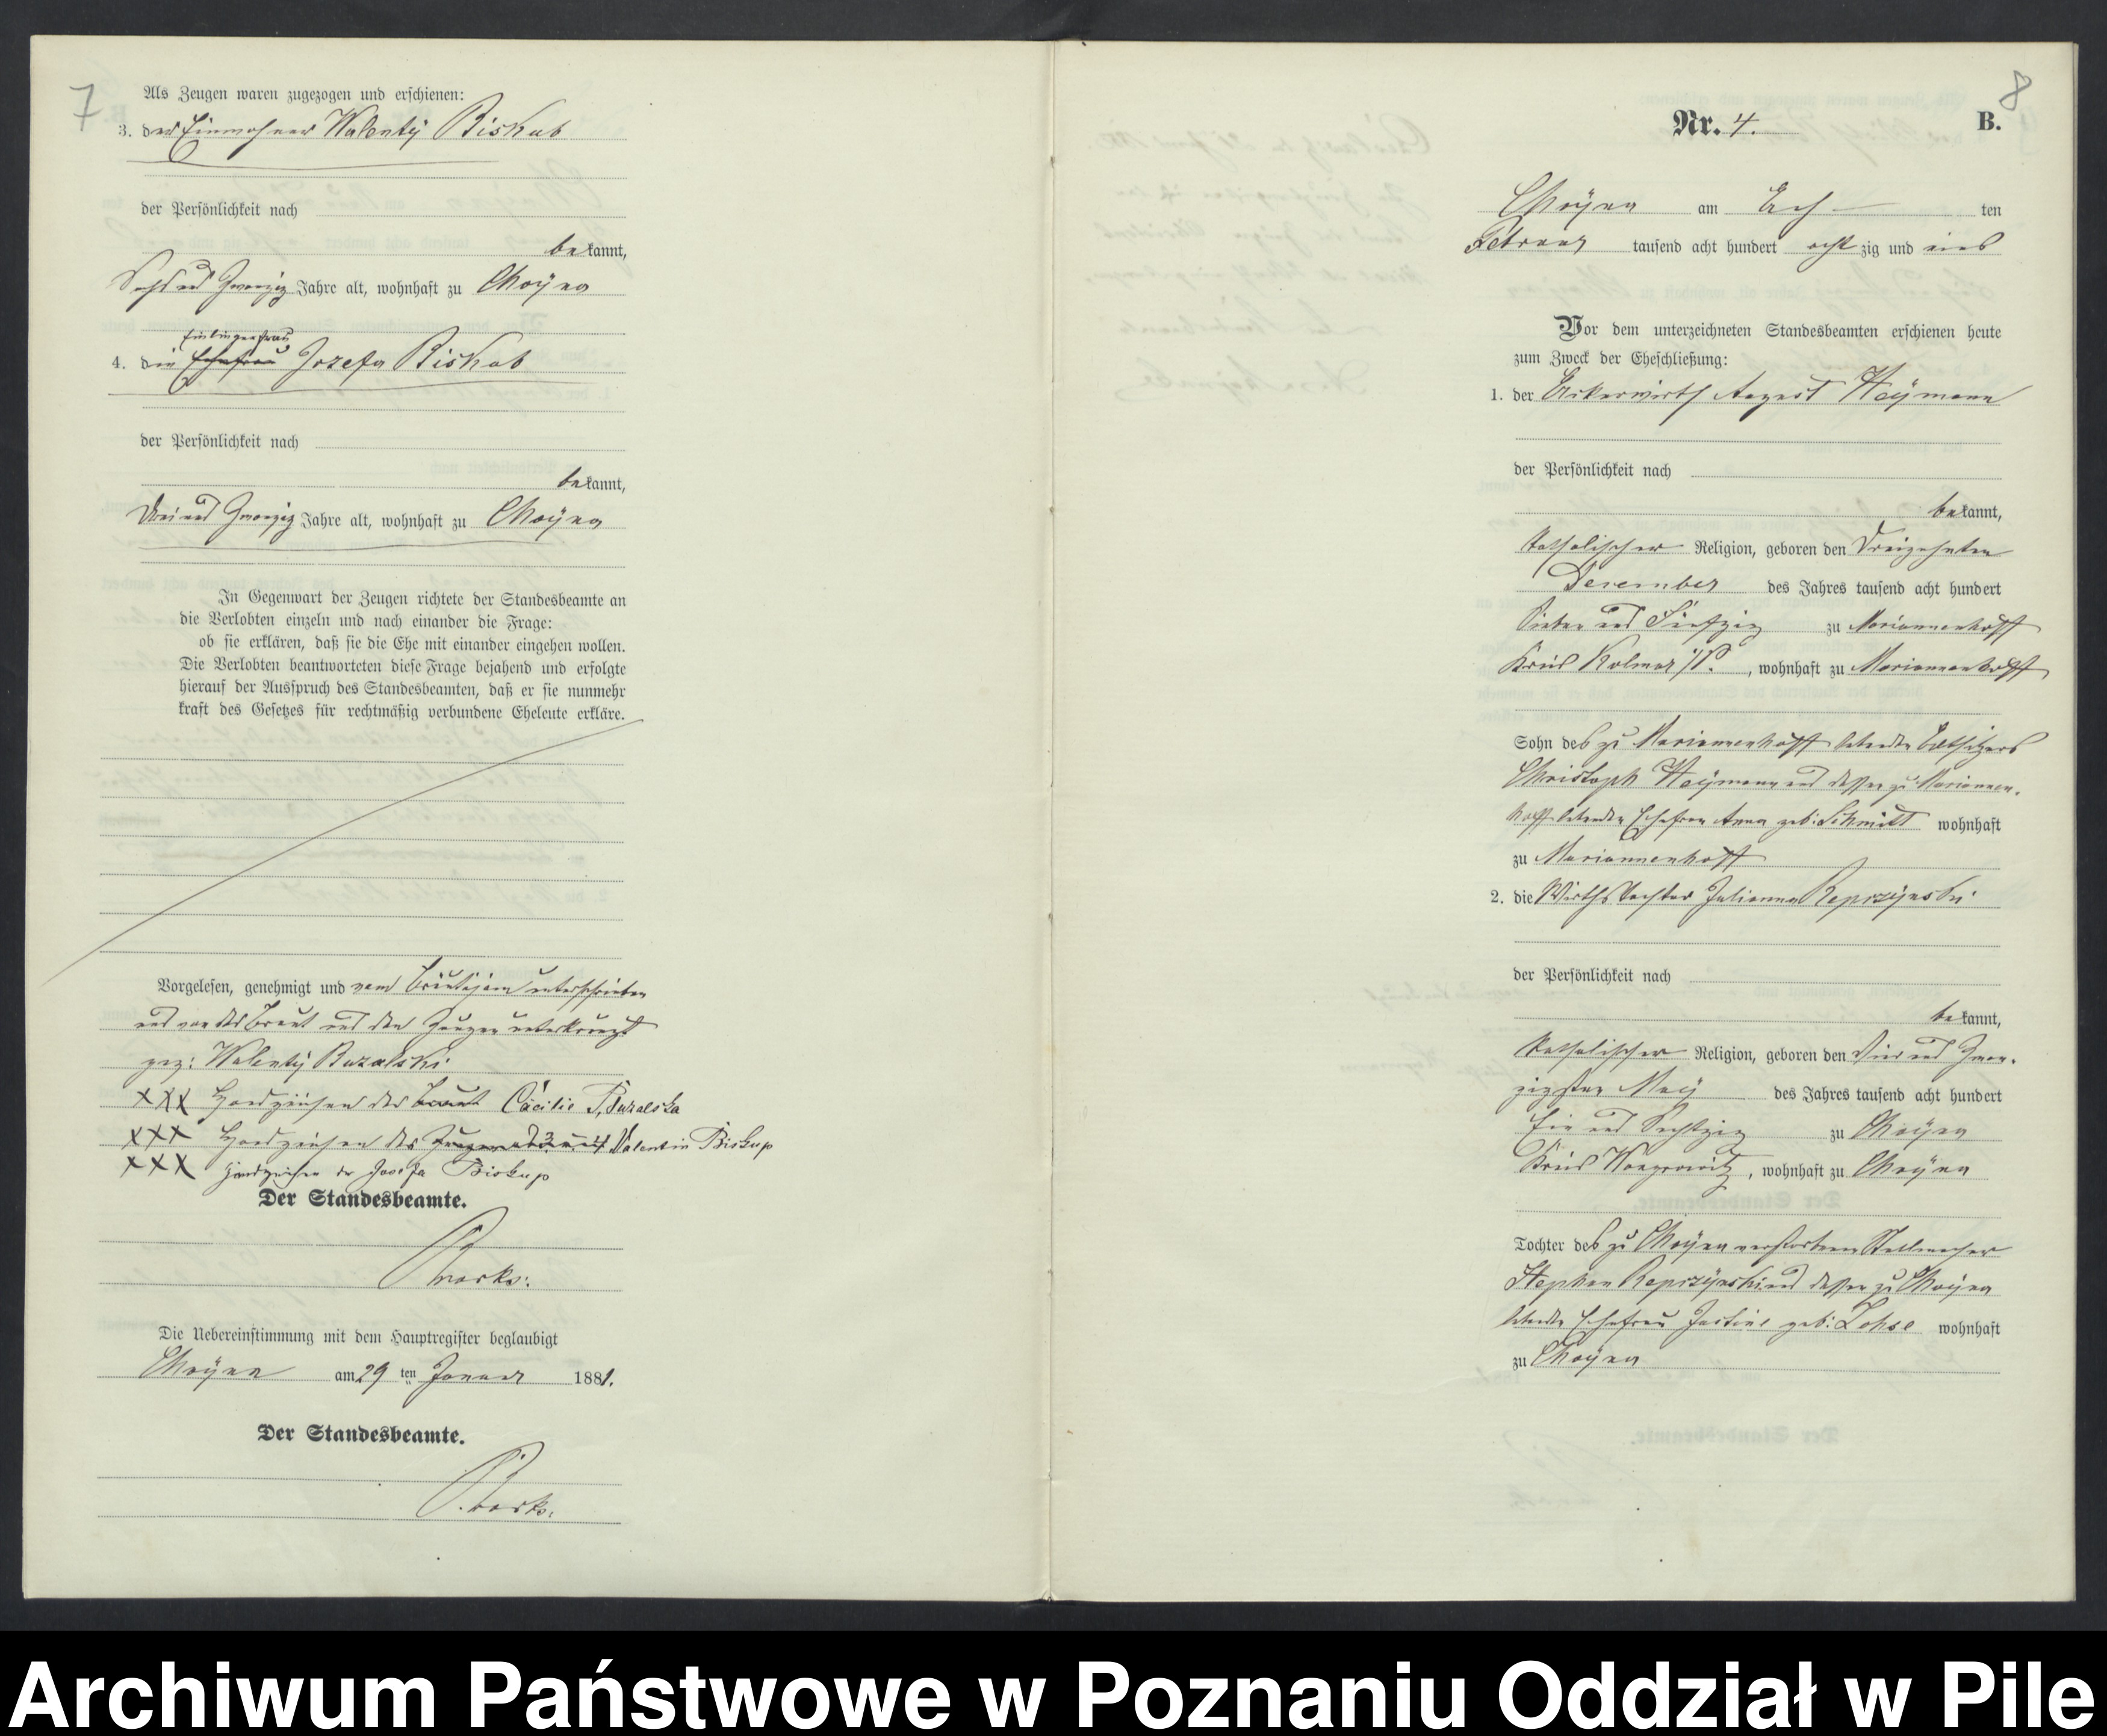 7
Als Zeugen waren zugezogen und erschienen:
3. der Einwohner Walenty Biskub
der Persönlichkeit nach
bekannt,
Sechs und Zwanzig Jahre alt, wohnhaft zu Choyna
Einlingerfrau
4. die Ehefrau Jozefa Biskub
der Persönlichkeit nach
bekannt,
Drei und Zwanzig Jahre alt, wohnhaft zu Choyna
In Gegenwart der Zeugen richtete der Standesbeamte an
die Verlobten einzeln und nach einander die Frage:
ob sie erklären, daß sie die Ehe mit einander eingehen wollen.
Die Verlobten beantworteten diese Frage bejahend und erfolgte
hierauf der Ausspruch des Standesbeamten, daß er sie nunmehr
kraft des Gesetzes für rechtmäßig verbundene Eheleute erkläre.
Vorgelesen, genehmigt und vom Bräutigam unterschrieben
und von der Braut und den Zeugen unterkreuzt
gez: Walenty Buzalski
XXX Handzeichen der Braut Cäcilie Buzalska
XXX Handzeichen des Zeugen Valentin Biskup
XXX Handzeichen der Josefa Biskup
Der Standesbeamte.
Die Uebereinstimmung mit dem Hauptregister beglaubigt
Choyna am 29 ten Januar 1881.
Der Standesbeamte.
8
Nr. 4. B.
Choyna am Ach ten
Februar tausend acht hundert achtzig und eins
Vor dem unterzeichneten Standesbeamten erschienen heute
zum Zweck der Eheschließung:
1. der Ackerwirth August Heymann
der Persönlichkeit nach
bekannt,
katholischer Religion, geboren den Dreizehnten
December des Jahres tausend acht hundert
Sieben und Fünfzig zu Mariannenhoff
Kreis Kolmar i/P., wohnhaft zu Mariannenhoff
Sohn des zu Mariannenhoff lebenden
Christoph Heymann und dessen zu Mariannen-
hoff lebenden Ehefrau Anna geb: Schmidt wohnhaft
zu Mariannenhoff
2. die Wirthstochter Julianna Repczynski
der Persönlichkeit nach
bekannt,
katholischer Religion, geboren den Vier und Zwan-
zigsten May des Jahres tausend acht hundert
Ein und Sechszig zu Choyna
Kreis Wongrowitz, wohnhaft zu Choyna
Tochter des zu Choyna verstorbenen Stellmacher
Stephan Repczynski und dessen zu Choyna
lebende Ehefrau Justine geb: Lohse wohnhaft
zu Choyna
Archiwum Państwowe w Poznaniu Oddział w Pile